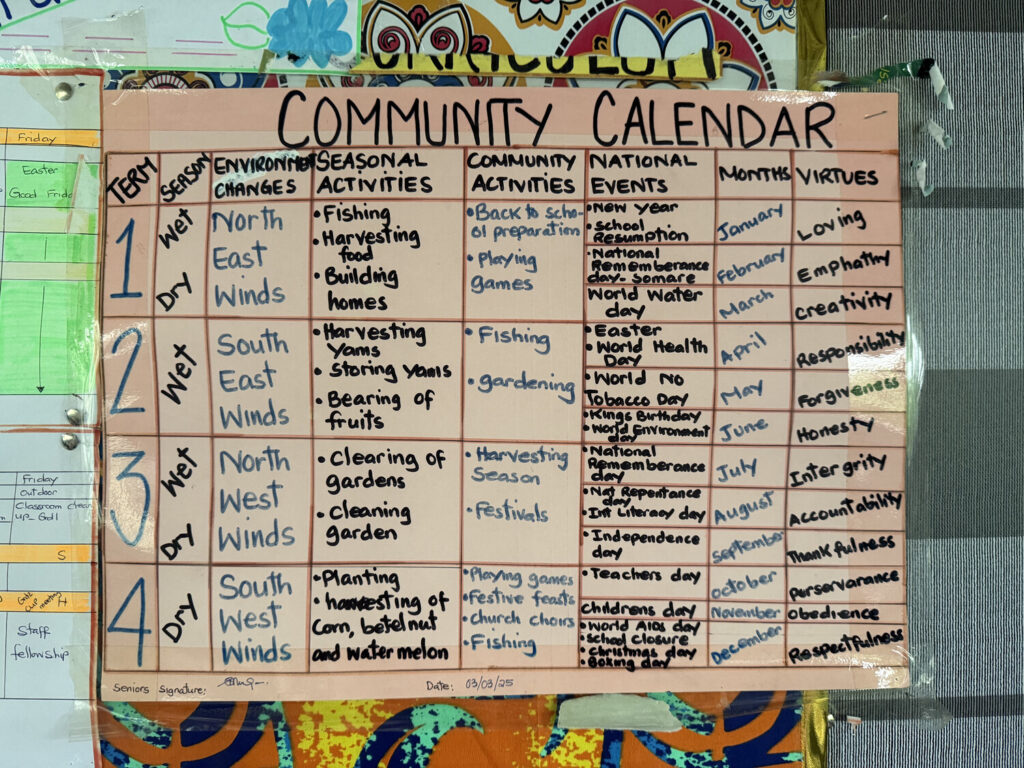 CURRICULUM
COMMUNITY CALENDAR
TERM
SEASON
ENVIRONMENT
CHANGES
SEASONAL
ACTIVITIES
COMMUNITY
ACTIVITIES
NATIONAL
EVENTS
MONTHS
VIRTUES
1
Wet
Dry
North
East
Winds
• Fishing
• Harvesting
food
• Building
homes
• Back to scho-
ol preparation
• Playing
games
• New Year
• School
Resumption
• National
Rememberance
day- Somare
World Water
day
January
February
March
Loving
Emphathy
creativity
2
Wet
South
East
Winds
• Harvesting
Yams
• Storing Yams
• Bearing of
fruits
• Fishing
• gardening
• Easter
• World Health
Day
• World No
Tobacco Day
• Kings Birthday
• World Environment
day
April
May
June
Responsibility
Forgiveness
Honesty
3
Wet
Dry
North
West
Winds
• Clearing of
gardens
• Cleaning
garden
• Harvesting
Season
• Festivals
• National
Rememberance
day
• Nat Repentance
day
• Int Literacy day
• Independence
day
July
August
September
Intergrity
Accountability
Thankfulness
4
Dry
South
West
Winds
• Planting
• harvesting of
Corn, betelnut
and watermelon
• Playing games
• Festive feasts
• church choirs
• Fishing
• Teachers day
Childrens day
• World AIDs day
• School closure
• Christmas day
• Boxing day
October
November
December
perservarance
obedience
Respectfulness
Seniors Signature:
Date: 03/03/25
Friday
Easter
Good Frida
Friday
Outdoor
Classroom clean
up- Gd1
S
H
Staff
fellowship